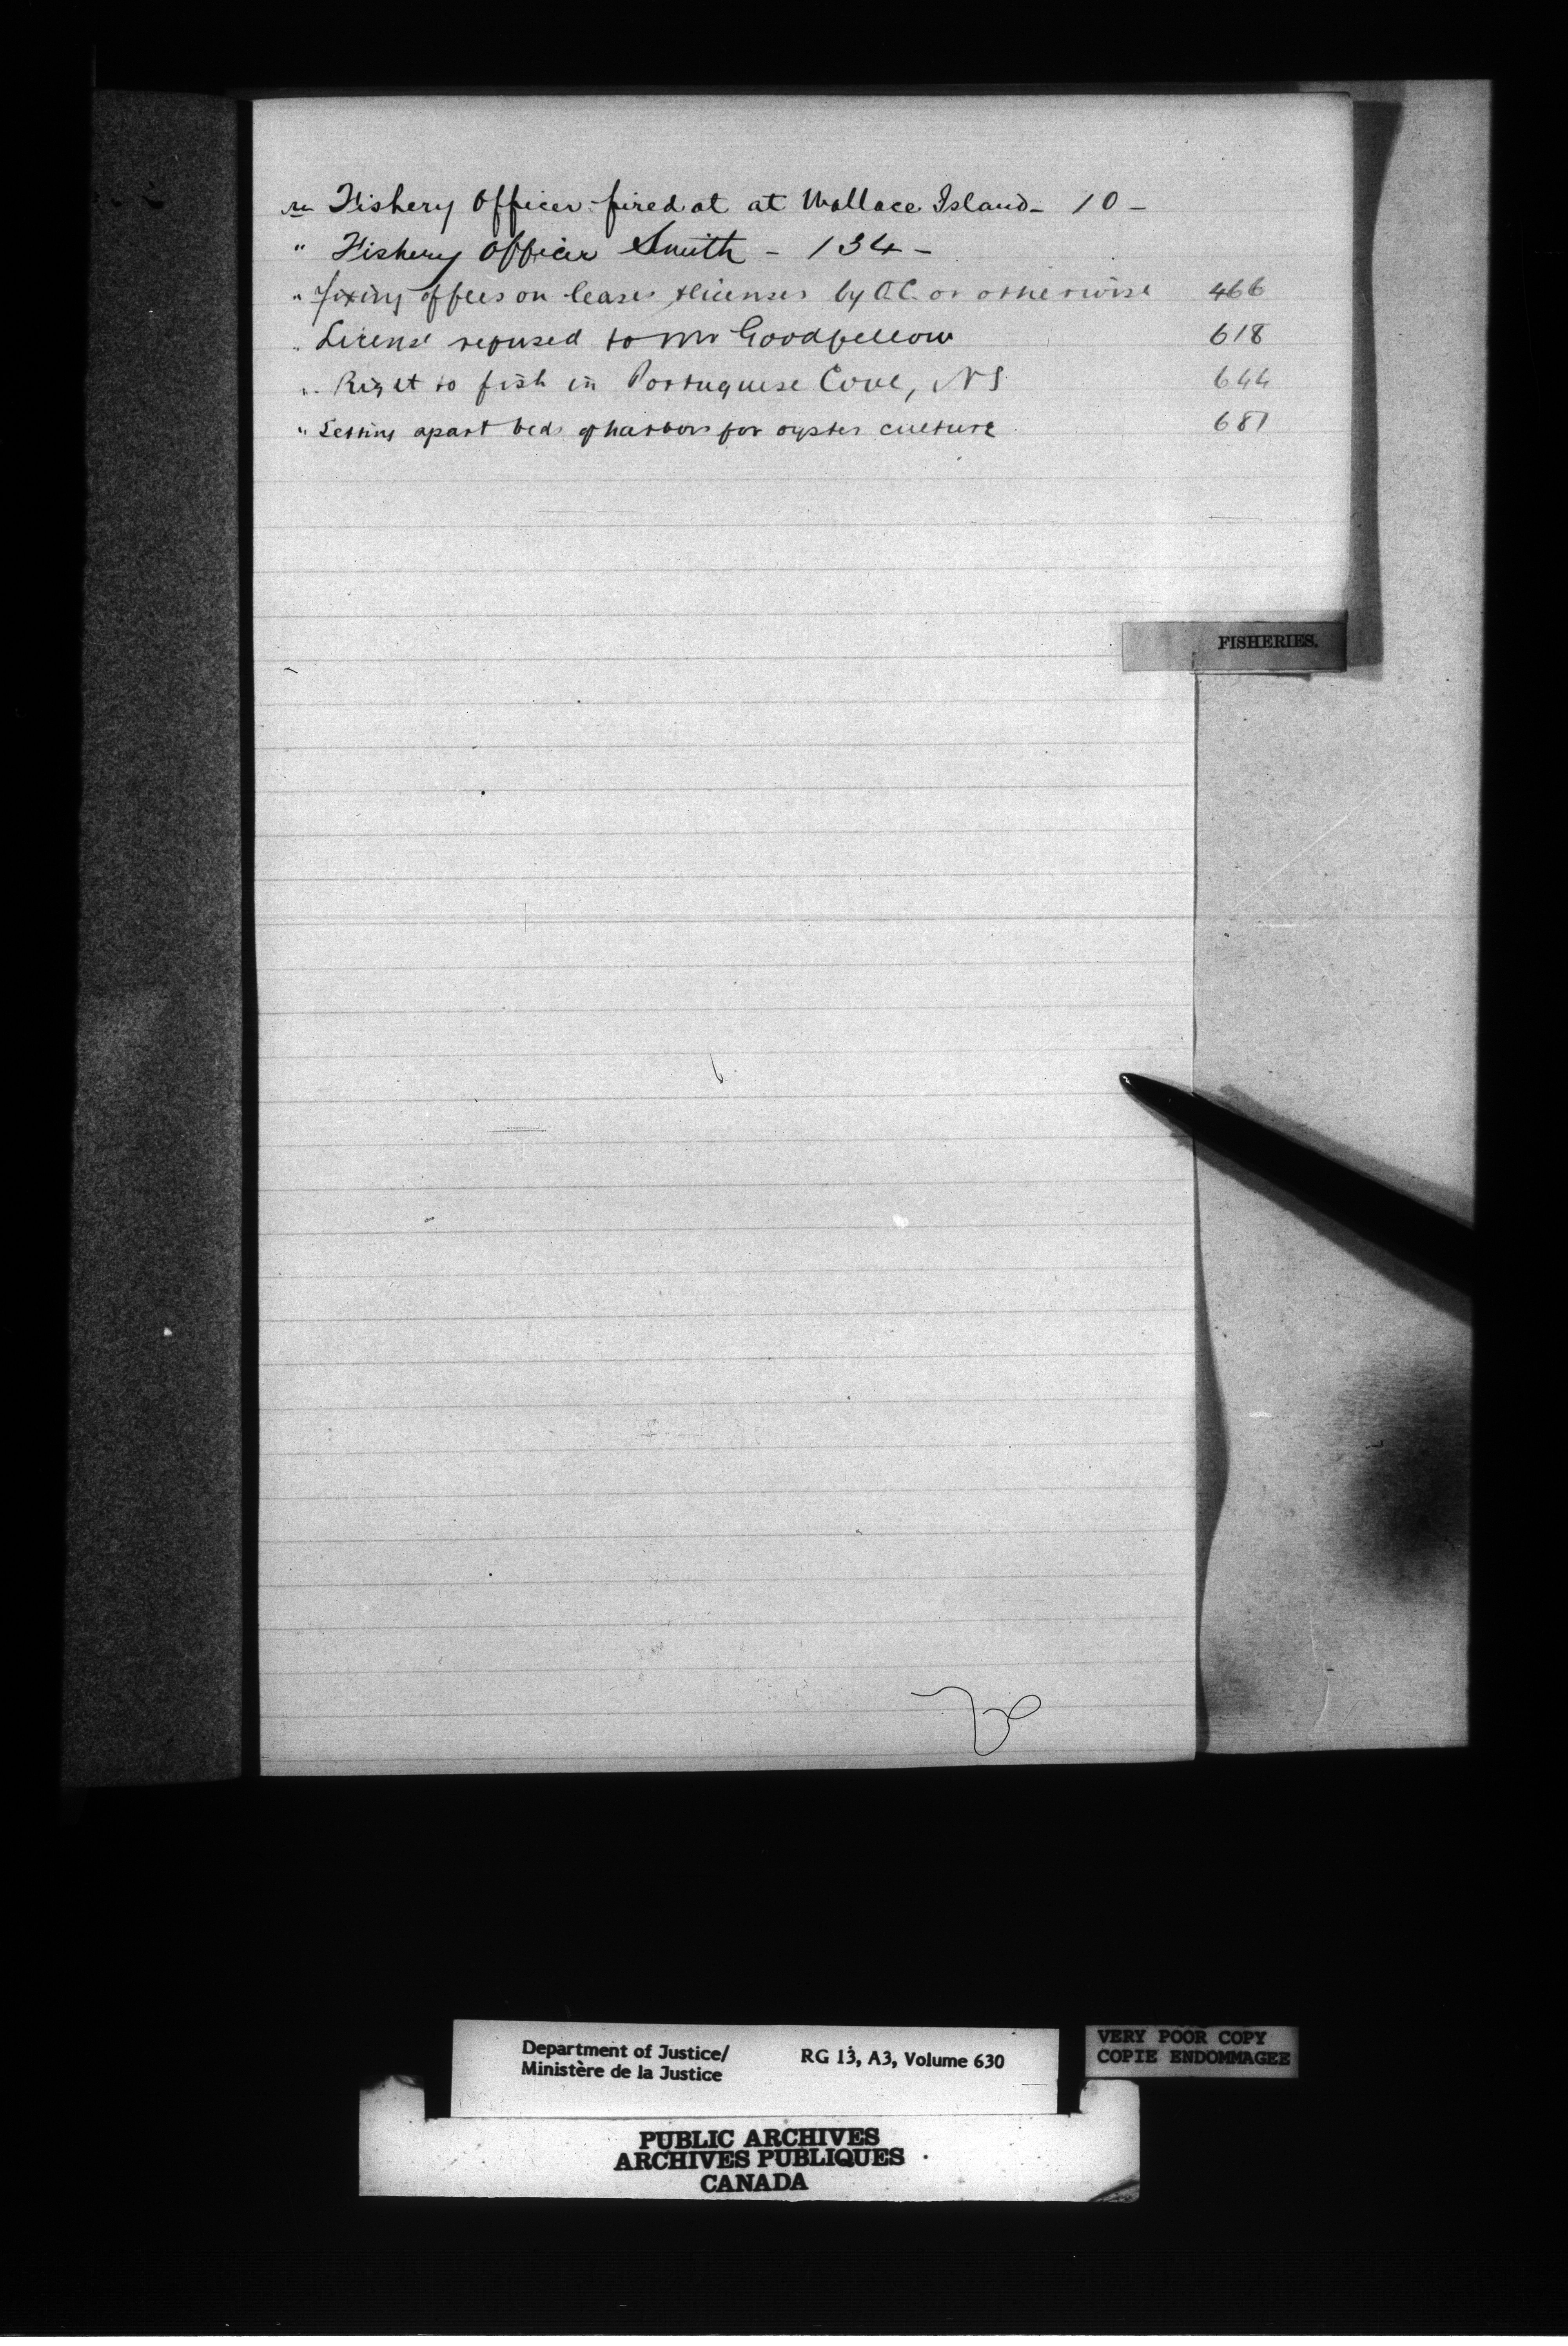 re Fishery Officer fired at at Wallace Island - 10 -
" Fishery Officer Smith - 134 -
" Fixing of fees on leases & licenses by O.C. or otherwise 466
" License refused to Mr Goodfellow 618
" Right to fish in Portuguese Cove, N S 644
" Setting apart beds of harbors for oyster culture 681
FISHERIES.
Department of Justice/ RG 13, A3, Volume 630
Ministère de la Justice
VERY POOR COPY
COPIE ENDOMMAGEE
PUBLIC ARCHIVES
ARCHIVES PUBLIQUES
CANADA